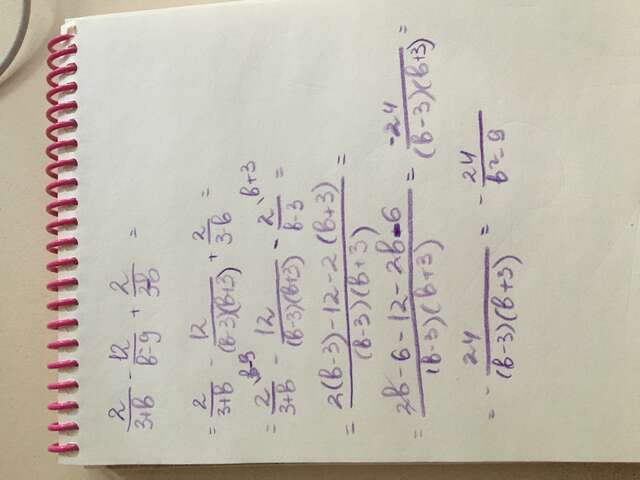 2/(3+b) - 12/(b-9) + 2/(3-b) =
= 2/(3+b) - 12/((b-3)(b+3)) + 2/(3-b) =
= 2/(3+b) \b-3 - 12/((b-3)(b+3)) - 2/(b-3) \b+3 =
= (2(b-3)-12-2(b+3))/((b-3)(b+3)) =
= (2b-6-12-2b-6)/((b-3)(b+3)) = -24/((b-3)(b+3)) =
= - 24/((b-3)(b+3)) = - 24/(b²-9)